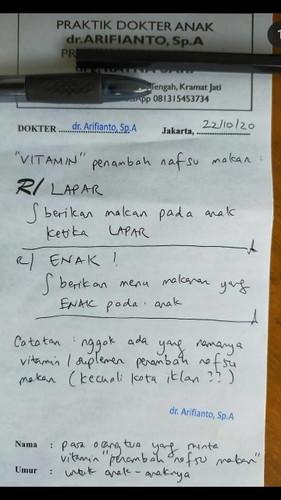 PRAKTIK DOKTER ANAK
dr.ARIFIANTO, Sp.A
Tengah, Kramat Jati
App 081315453734
DOKTER dr. Arifianto, Sp.A Jakarta, 22/10/20
"VITAMIN" penambah nafsu makan :
R/ LAPAR
∫ berikan makan pada anak
ketika LAPAR
R/ ENAK !
∫ berikan menu makanan yang
ENAK pada anak
Catatan : nggak ada yang namanya
vitamin / suplemen penambah nafsu
makan (kecuali kata iklan ??)
dr. Arifianto, Sp.A
Nama : para orangtua yang minta
vitamin "penambah nafsu makan"
Umur : untuk anak-anaknya